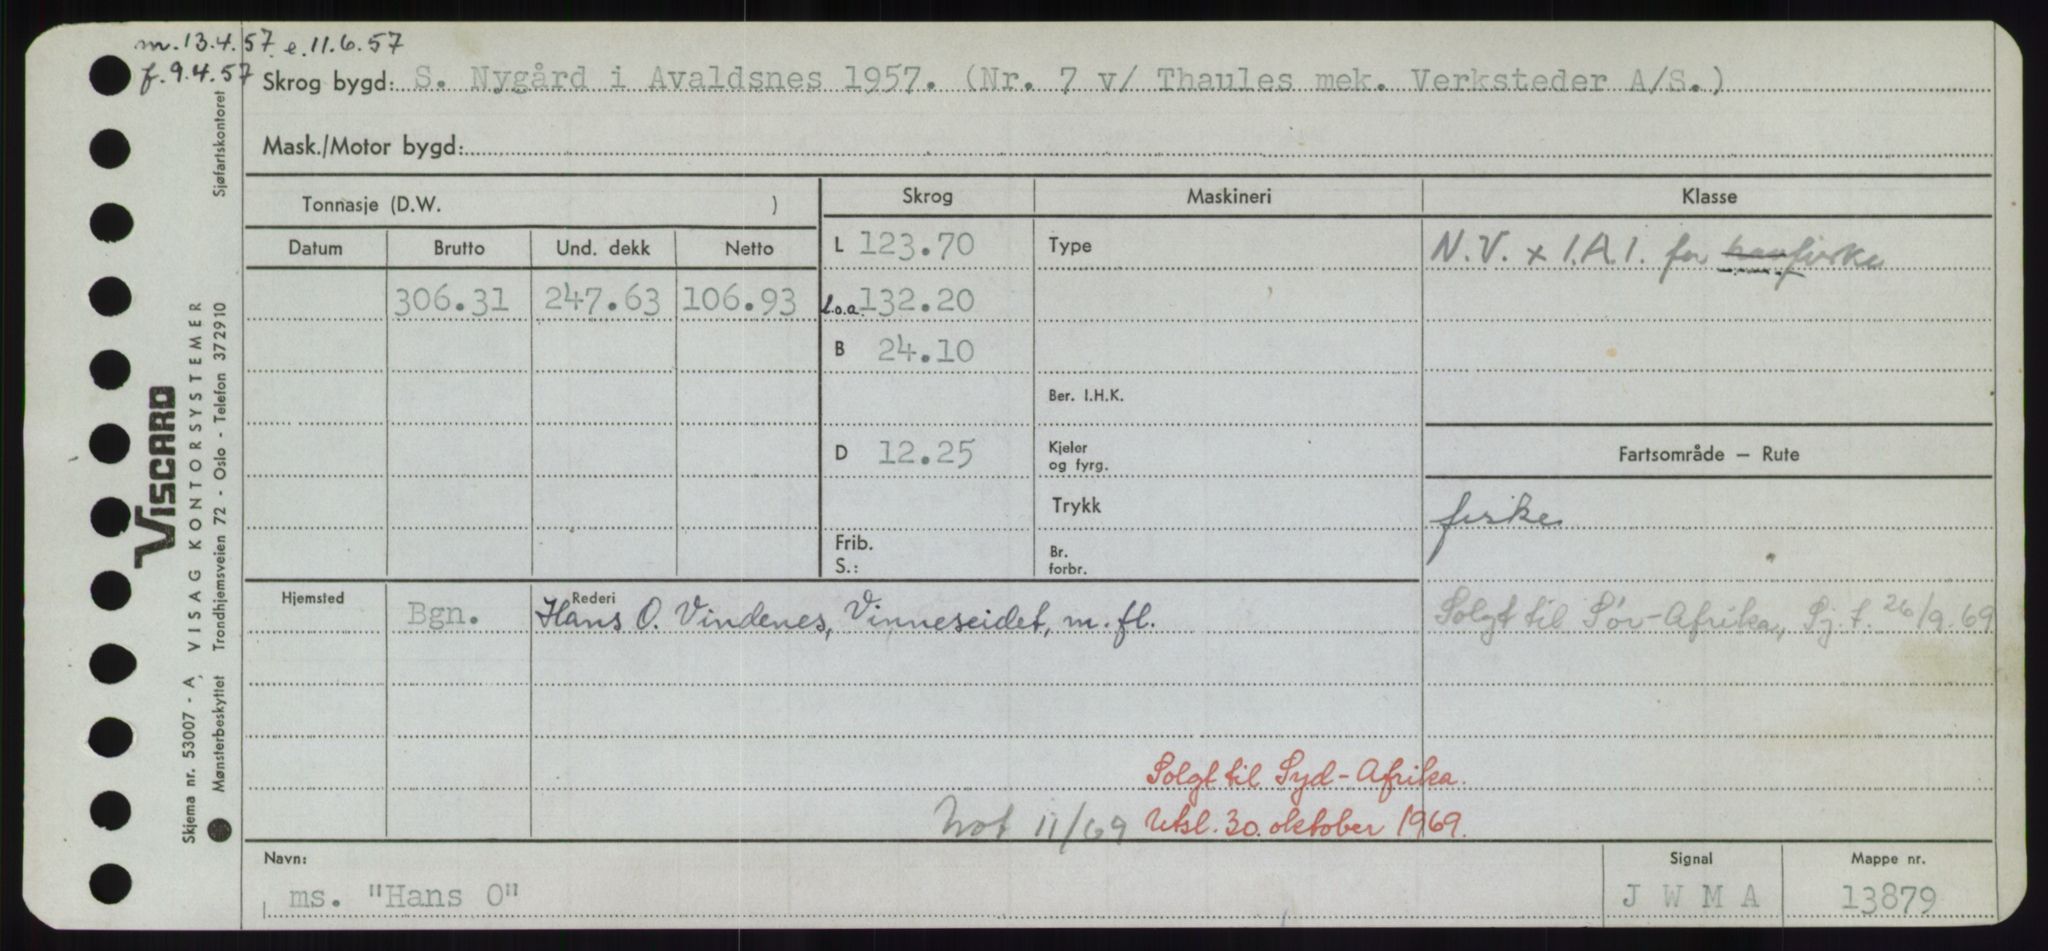 m. 13.4.57. e. 11.6.57
f. 9.4.57
Skrog bygd: S. Nygård i Avaldsnes 1957. (Nr. 7 v/ Thaules mek. Verksteder A/S.)
Mask./Motor bygd:
Tonnasje (D.W. )
Skrog
Maskineri
Klasse
Datum
Brutto
Und. dekk
Netto
L 123.70
Type
N.V. + 1.A.1. for havfiske
306.31
247.63
106.93
l.o.a. 132.20
B 24.10
Ber. I.H.K.
D 12.25
Kjeler
og fyrg.
Fartsområde — Rute
Trykk
fiske
Frib.
S.:
Br.
forbr.
Hjemsted
Bgn.
Rederi
Hans O. Vindenes, Vinneseidet, m. fl.
Solgt til Sør-Afrika, Sj.t. 26/9.69
Solgt til Syd-Afrika.
Not 11/69
Utsl. 30. oktober 1969.
Navn:
ms. "Hans O"
Signal
J W M A
Mappe nr.
13879
Skjema nr. 53007 - A
VISCARD
VISAG KONTORSYSTEMER
Mønsterbeskyttet Trondhjemsveien 72 - Oslo - Telefon 372910 Sjøfartskontoret